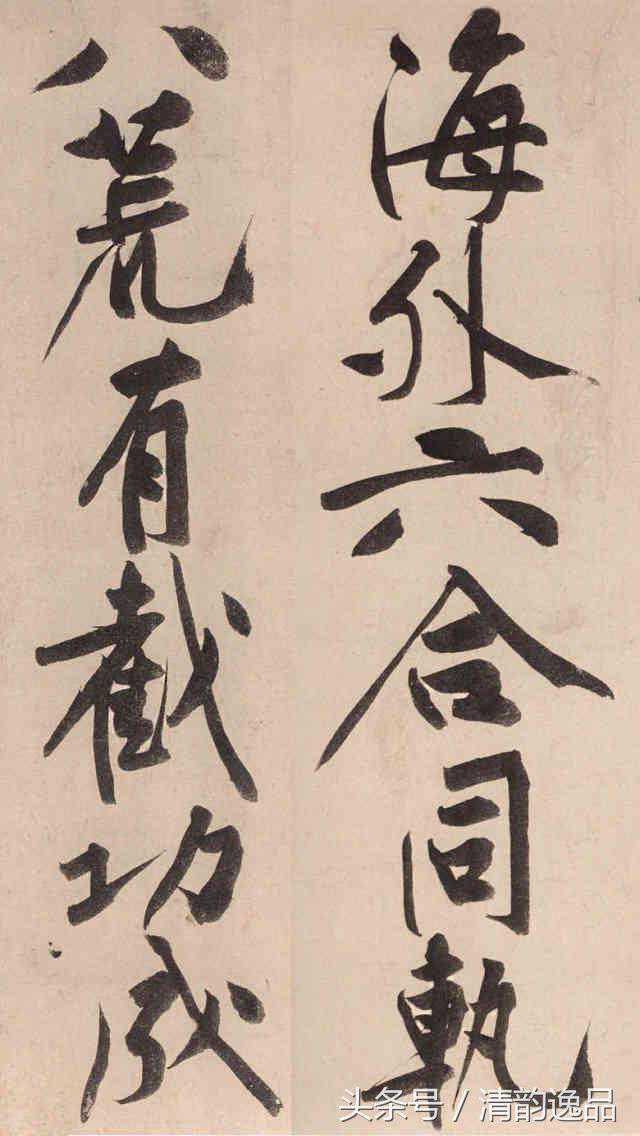 海外六合同軌
八荒有截功成
头条号/清韵逸品